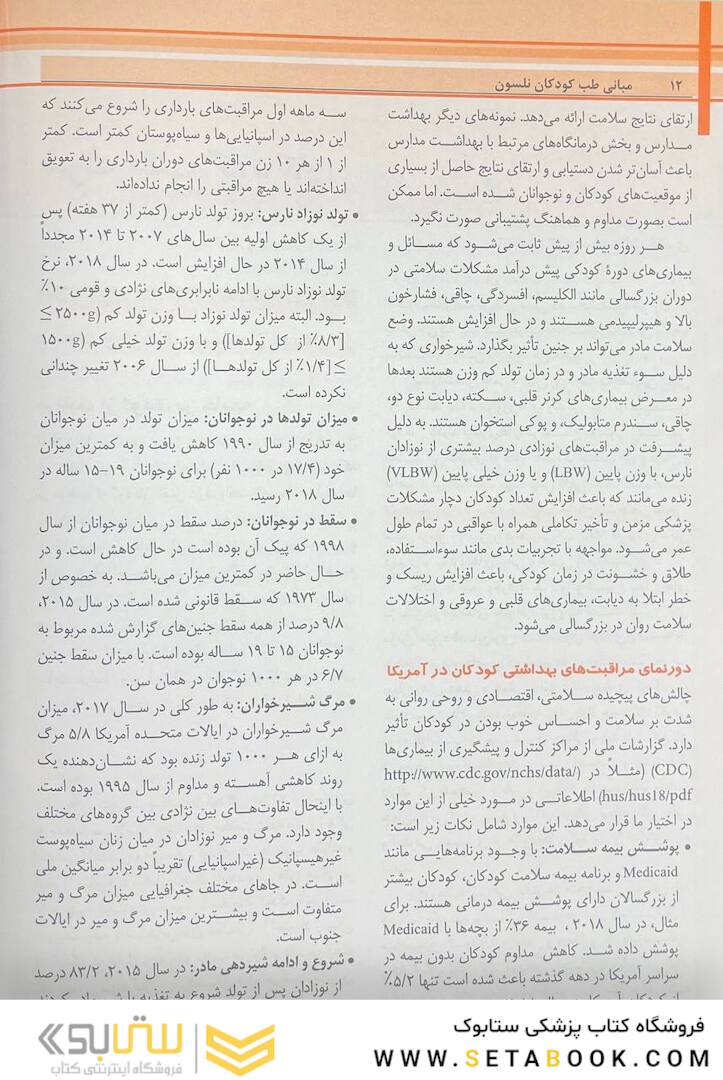 ۱۲ مبانی طب کودکان نلسون
ارتقای نتایج سلامت ارائه می‌دهد. نمونه‌های دیگر بهداشت
مدارس و بخش درمانگاه‌های مرتبط با بهداشت مدارس
باعث آسان‌تر شدن دستیابی و ارتقای نتایج حاصل از بسیاری
از موقعیت‌های کودکان و نوجوانان شده است. اما ممکن
است بصورت مداوم و هماهنگ پشتیبانی صورت نگیرد.
هر روزه بیش از پیش ثابت می‌شود که مسائل و
بیماری‌های دورهٔ کودکی پیش درآمد مشکلات سلامتی در
دوران بزرگسالی مانند الکلیسم، افسردگی، چاقی، فشارخون
بالا و هیپرلیپیدمی هستند و در حال افزایش هستند. وضع
سلامت مادر می‌تواند بر جنین تأثیر بگذارد. شیرخواری که به
دلیل سوء تغذیه مادر و در زمان تولد کم وزن هستند بعدها
در معرض بیماری‌های کرنر قلبی، سکته، دیابت نوع دو،
چاقی، سندرم متابولیک، و پوکی استخوان هستند. به دلیل
پیشرفت در مراقبت‌های نوزادی درصد بیشتری از نوزادان
نارس، با وزن پایین (LBW) و یا وزن خیلی پایین (VLBW)
زنده می‌مانند که باعث افزایش تعداد کودکان دچار مشکلات
پزشکی مزمن و تأخیر تکاملی همراه با عواقبی در تمام طول
عمر می‌شود. مواجهه با تجربیات بدی مانند سوءاستفاده،
طلاق و خشونت در زمان کودکی، باعث افزایش ریسک و
خطر ابتلا به دیابت، بیماری‌های قلبی و عروقی و اختلالات
سلامت روان در بزرگسالی می‌شود.
دورنمای مراقبت‌های بهداشتی کودکان در آمریکا
چالش‌های پیچیده سلامتی، اقتصادی و روحی روانی به
شدت بر سلامت و احساس خوب بودن در کودکان تأثیر
دارد. گزارشات ملی از مراکز کنترل و پیشگیری از بیماری‌ها
(CDC) (مثلاً در http://www.cdc.gov/nchs/data/
hus/hus18/pdf) اطلاعاتی در مورد خیلی از این موارد
در اختیار ما قرار می‌دهد. این موارد شامل نکات زیر است:
• پوشش بیمه سلامت: با وجود برنامه‌هایی مانند
Medicaid و برنامه بیمه سلامت کودکان، کودکان بیشتر
از بزرگسالان دارای پوشش بیمه درمانی هستند. برای
مثال، در سال ۲۰۱۸ ، بیمه ۳۶٪ از بچه‌ها با Medicaid
پوشش داده شد. کاهش مداوم کودکان بدون بیمه در
سراسر آمریکا در دهه گذشته باعث شده است تنها ۵/۲٪
سه ماهه اول مراقبت‌های بارداری را شروع می‌کنند که
این درصد در اسپانیایی‌ها و سیاه‌پوستان کمتر است. کمتر
از ۱ از هر ۱۰ زن مراقبت‌های دوران بارداری را به تعویق
انداخته‌اند یا هیچ مراقبتی را انجام نداده‌اند.
• تولد نوزاد نارس: بروز تولد نارس (کمتر از ۳۷ هفته) پس
از یک کاهش اولیه بین سال‌های ۲۰۰۷ تا ۲۰۱۴ مجدداً
از سال ۲۰۱۴ در حال افزایش است. در سال ۲۰۱۸، نرخ
تولد نوزاد نارس با ادامه نابرابری‌های نژادی و قومی ۱۰٪
بود. البته میزان تولد نوزاد با وزن تولد کم (۲۵۰۰g ≥
[۸/۳٪ از کل تولدها]) و با وزن تولد خیلی کم (۱۵۰۰g
≥[۱/۴٪ از کل تولدها]) از سال ۲۰۰۶ تغییر چندانی
نکرده است.
• میزان تولدها در نوجوانان: میزان تولد در میان نوجوانان
به تدریج از سال ۱۹۹۰ کاهش یافت و به کمترین میزان
خود (۱۷/۴ در ۱۰۰۰ نفر) برای نوجوانان ۱۹-۱۵ ساله در
سال ۲۰۱۸ رسید.
• سقط در نوجوانان: درصد سقط در میان نوجوانان از سال
۱۹۹۸ که پیک آن بوده است در حال کاهش است. و در
حال حاضر در کمترین میزان می‌باشد. به خصوص از
سال ۱۹۷۳ که سقط قانونی شده است. در سال ۲۰۱۵،
۹/۸ درصد از همه سقط جنین‌های گزارش شده مربوط به
نوجوانان ۱۵ تا ۱۹ ساله بوده است. با میزان سقط جنین
۶/۷ در هر ۱۰۰۰ نوجوان در همان سن.
• مرگ شیرخواران: به طور کلی در سال ۲۰۱۷، میزان
مرگ شیرخواران در ایالات متحده آمریکا ۵/۸ مرگ
به ازای هر ۱۰۰۰ تولد زنده بود که نشان‌دهنده یک
روند کاهشی آهسته و مداوم از سال ۱۹۹۵ بوده است.
با اینحال تفاوت‌های بین نژادی بین گروه‌های مختلف
وجود دارد. مرگ و میر نوزادان در میان زنان سیاه‌پوست
غیرهیسپانیک (غیراسپانیایی) تقریباً دو برابر میانگین ملی
است. در جاهای مختلف جغرافیایی میزان مرگ و میر
متفاوت است و بیشترین میزان مرگ و میر در ایالات
جنوب است.
• شروع و ادامه شیردهی مادر: در سال ۲۰۱۵، ۸۳/۲ درصد
از نوزادان پس از تولد شروع به تغذیه با شیر
فروشگاه کتاب پزشکی ستابوک
WWW.SETABOOK.COM
ستابوک
فروشگاه اینترنتی کتاب